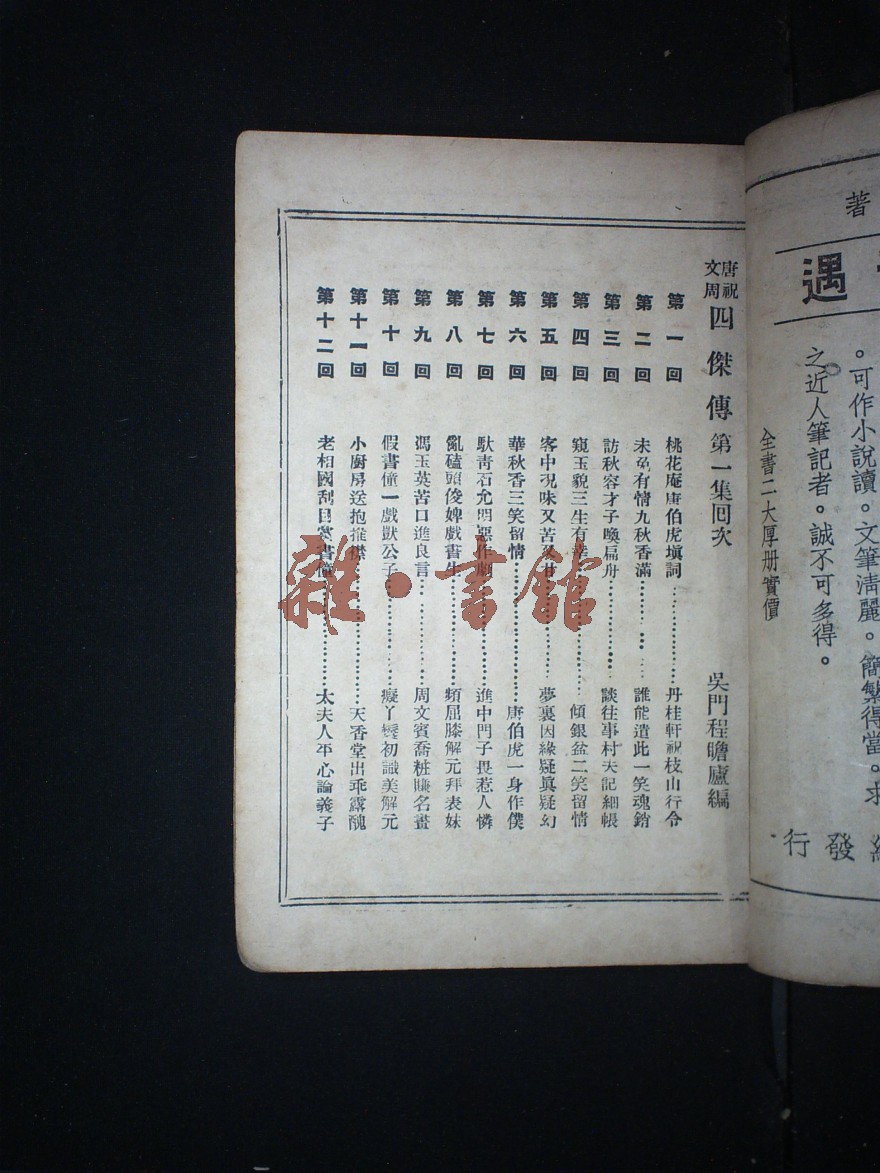 著
遇
。可作小說讀。文筆淸麗。簡繁得當。求
之近人筆記者。誠不可多得。
全書二大厚册實價
發行
唐祝文周四傑傳 第一集回次 吳門程瞻廬編
第一回 桃花庵唐伯虎塡詞 丹桂軒祝枝山行令
第二回 未免有情九秋香滿 誰能遣此一笑魂銷
第三回 訪秋容才子喚扁舟 談往事村夫記細帳
第四回 窺玉貌三生有幸 傾銀盆二笑留情
第五回 客中況味又苦又甘 夢裏因緣疑眞疑幻
第六回 華秋香三笑留情 唐伯虎一身作僕
第七回 馱靑石允明惡作劇 進中門子畏惹人憐
第八回 亂磕頭俊婢戲書生 頻屈膝解元拜表妹
第九回 馮玉英苦口進良言 周文賓喬粧賺名畫
第十回 假書僮一戲獃公子 癡丫鬟初識美解元
第十一回 小廚房送抱推襟 天香堂出乖露醜
第十二回 老相國刮目賞書僮 太夫人平心論義子
雜·書館